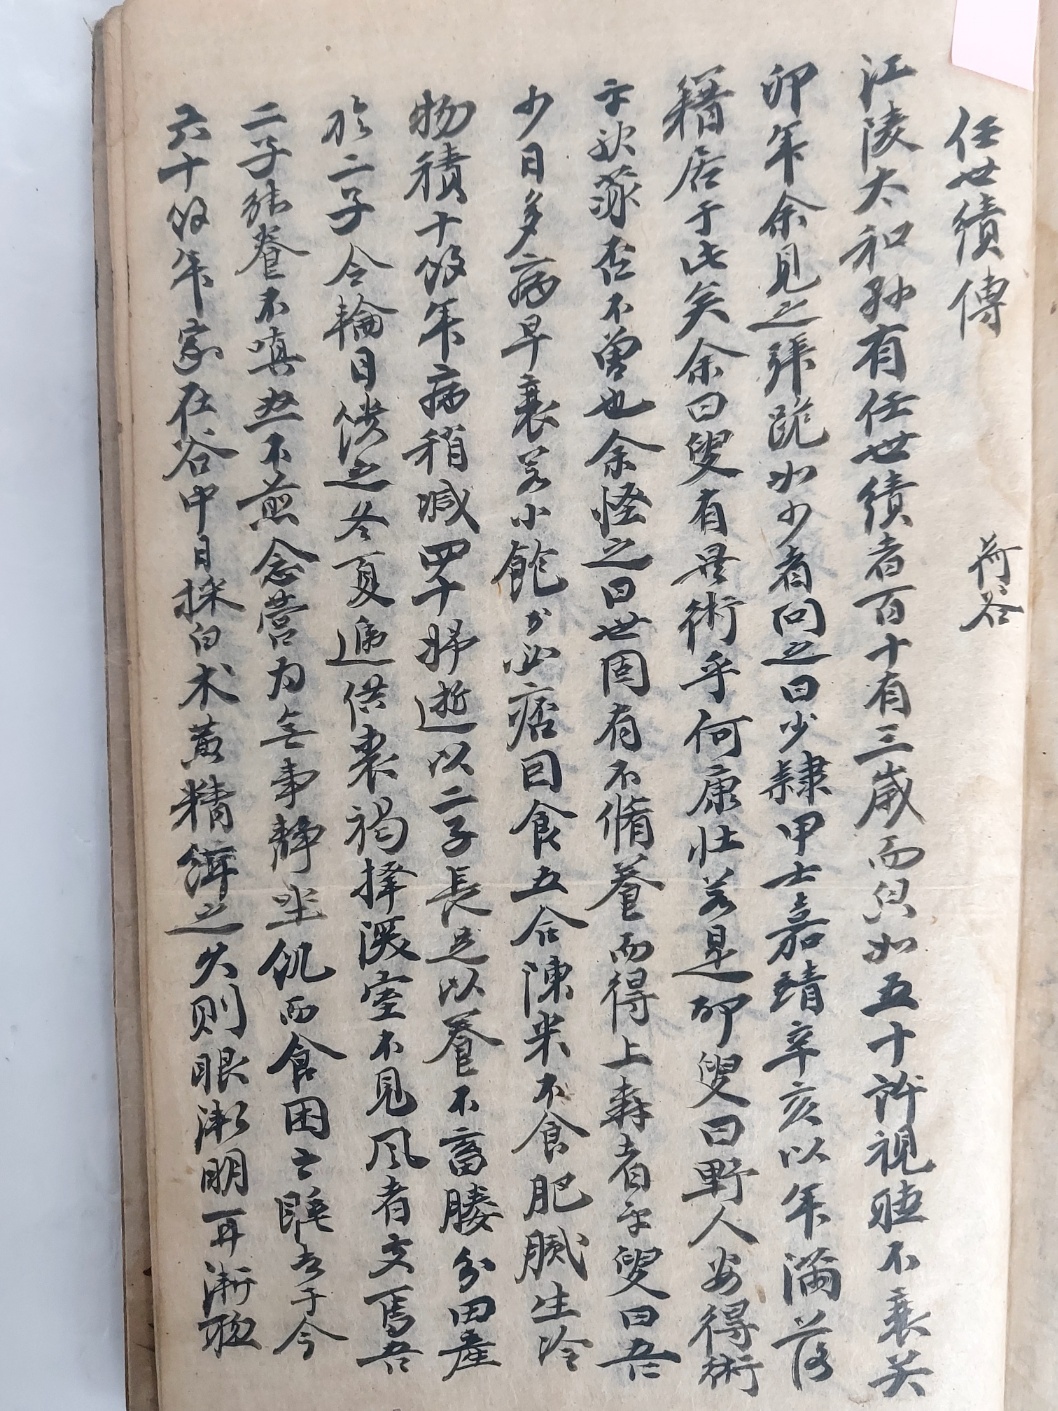 任世績傳
荷谷
江陵太和孙有任世績者百十有三歲而皃如五十許視聴不衰癸
卯年余見之拜跪如少者问之曰少隸甲士嘉靖辛亥以年滿落
籍居于此矣余曰叟有異術乎何康壮若是耶叟曰野人安得術
乎欤葯否不曽也余怪之曰世固有不脩養而得上壽者乎叟曰吾
少日多病早衰若小飽必痞日食五合陳米不食肥膩生冷
物積十餘年病稍减四十婦逝以二子長足以養不畜媵分田產
於二子令輪日饋之冬夏遞供裘褐擇溪室不見风者文焉吾
二子能養不嗔怒不煎念营为無事静坐飢而食困而睡者于今
六十餘年家在谷中日採白术黄精餌之久则眼漸明耳漸聡